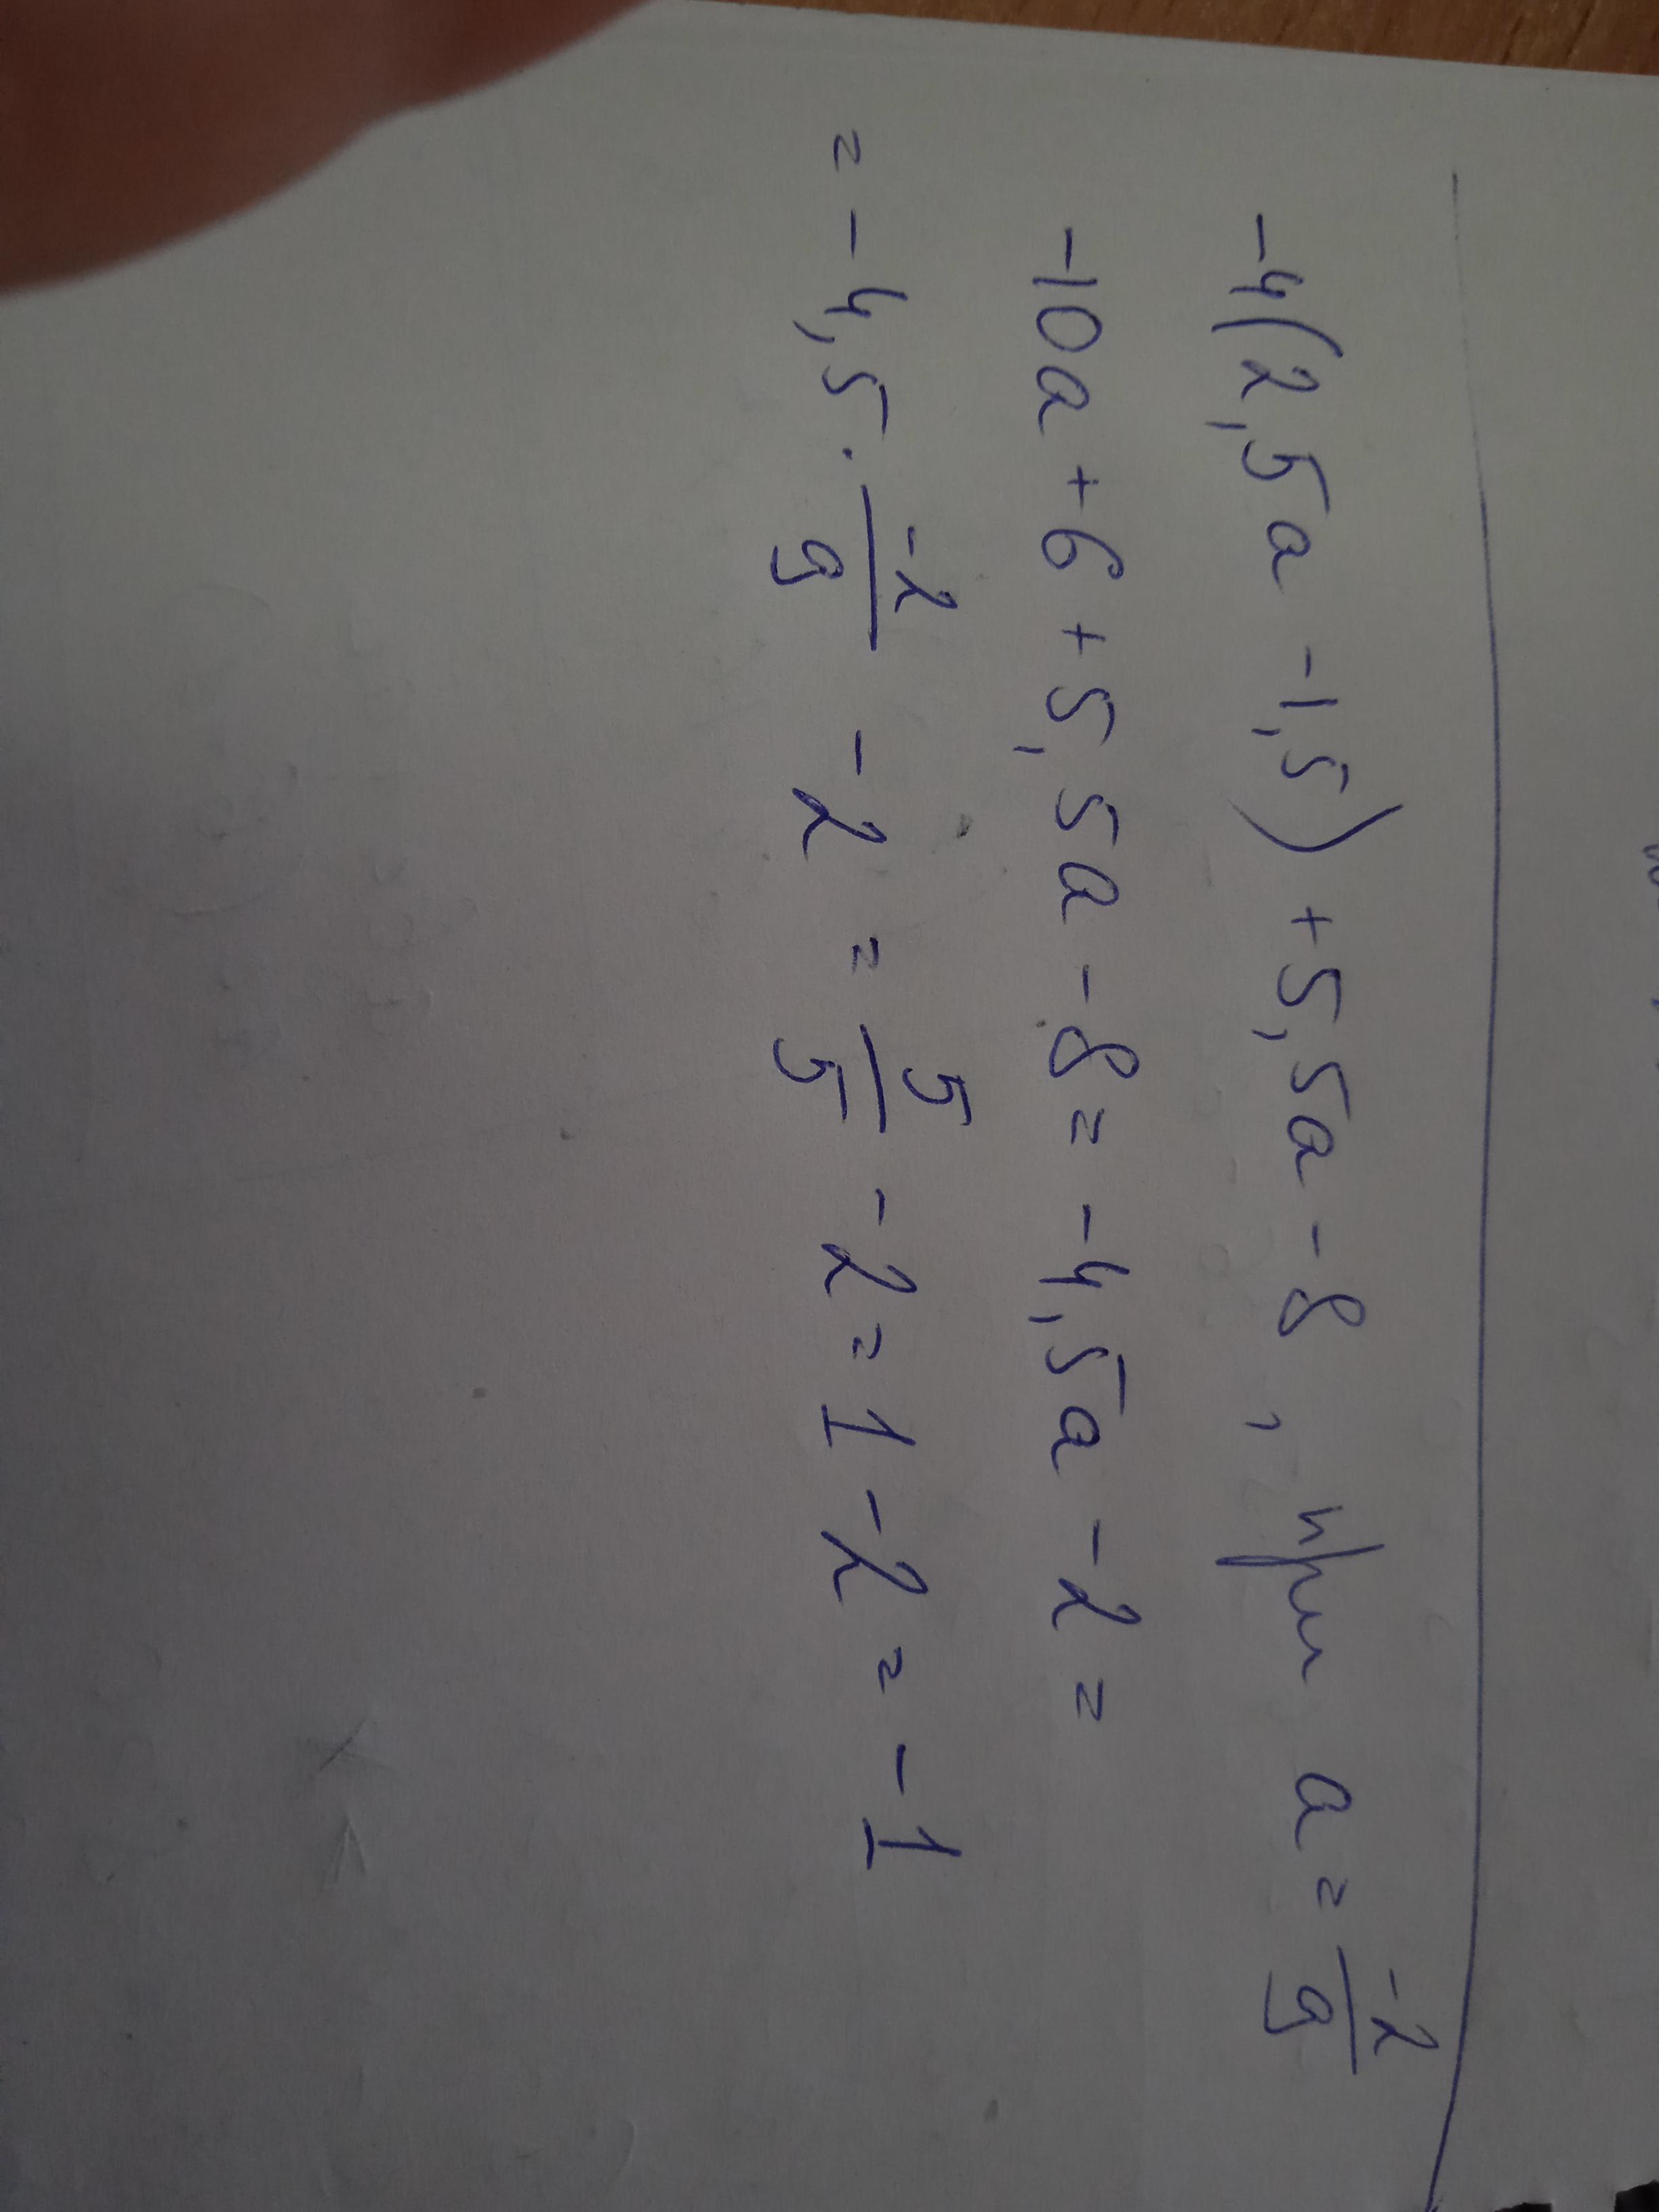 -4(2,5a -1,5) + 5,5a - 8, при a = -2/9
-10a + 6 + 5,5a - 8 = -4,5a - 2 =
= -4,5 · -2/9 - 2 = 5/5 - 2 = 1 - 2 = -1